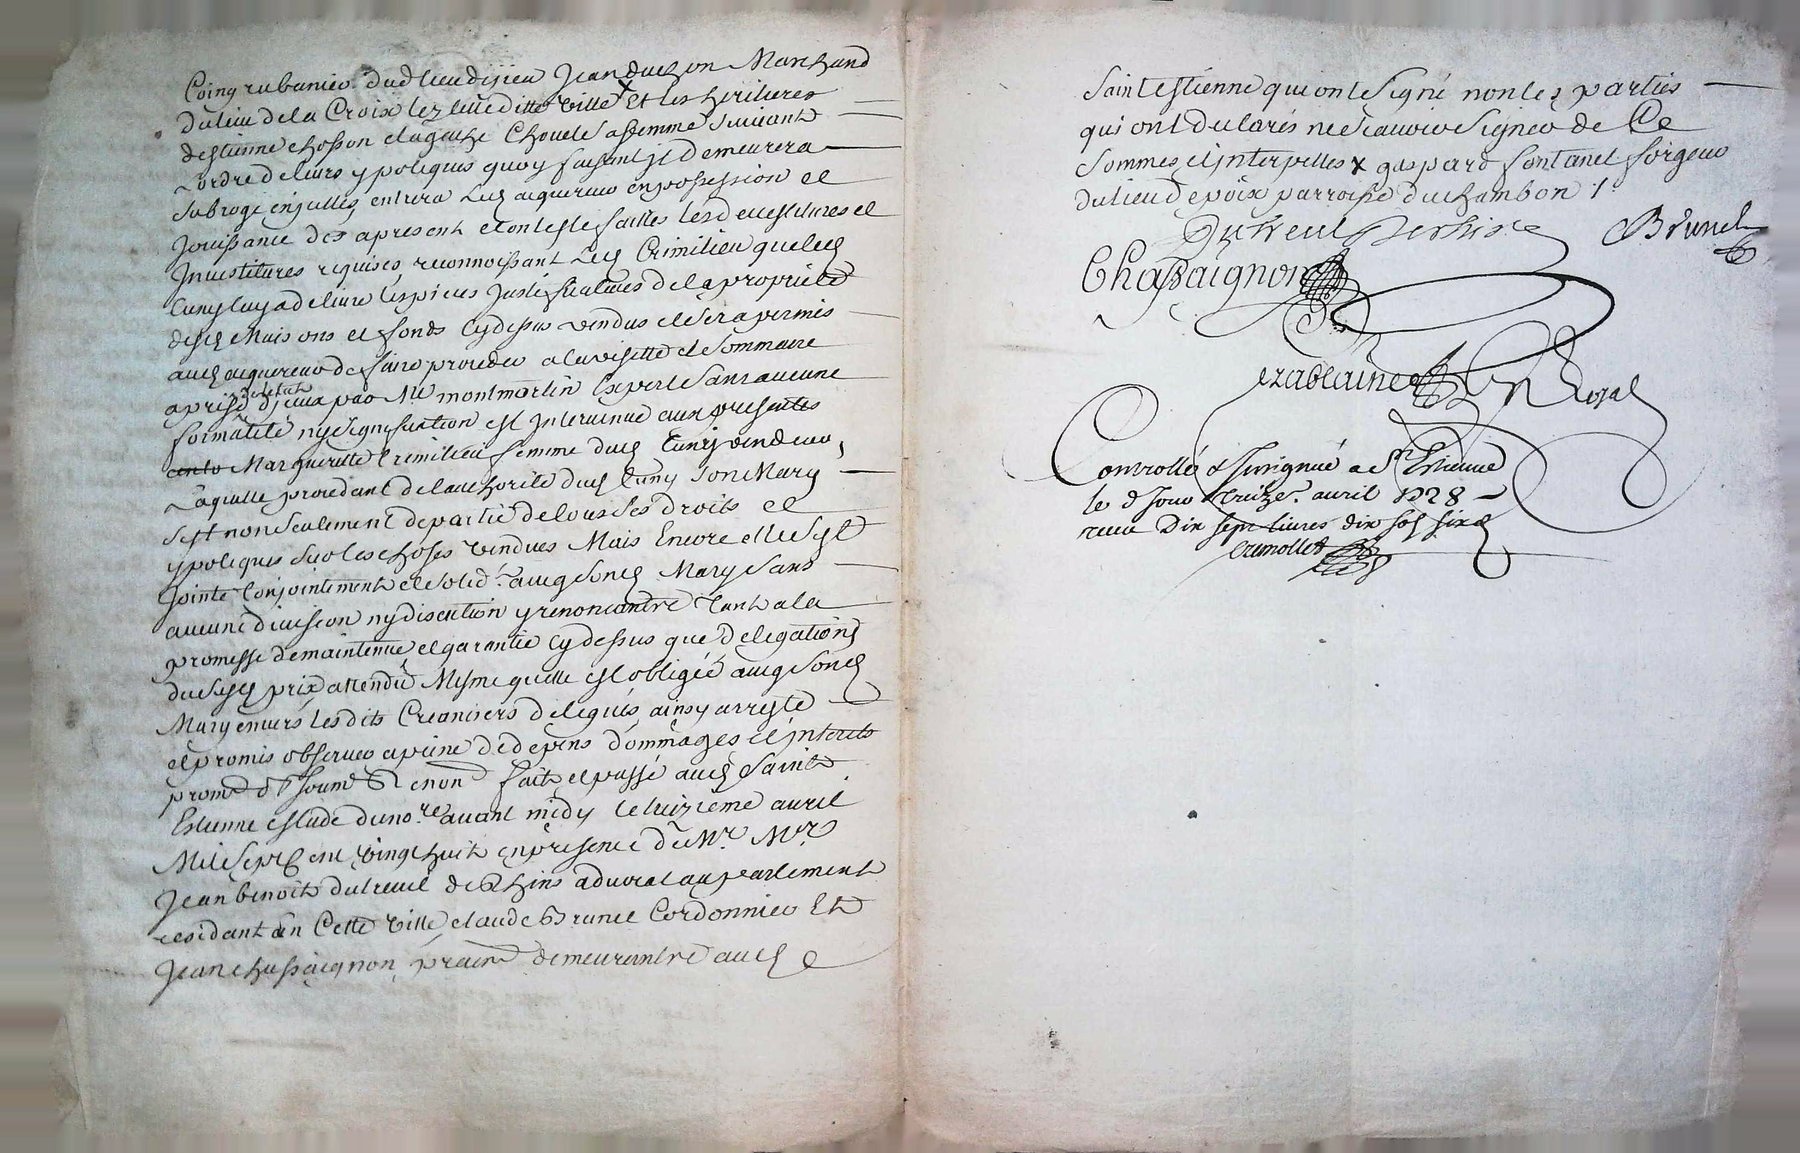 Coing rubanier dud lieu dizieu Jean duchon Marchand
du lieu de la Croix lez cette ditte ville x Et les heritieres
destienne chosson et agathe Chovel sa femme suivant
Lordre de leurs ypoteques quoy faisant jl demeurera
subrogé enjcelles, entrera Led aquereur en possession et
Jouissance des apresent et ont esté faittes les devestitures et
Investitures requises, reconnoissant Led Crimilieu que led
Cuny luy a delivré les pieces Justificatives de la proprieté
desd Maisons et fonds cy dessus vendus et sera permis
aud aquereur de faire proceder a la visitte et sommaire
aprise djceux par Me montmartin Expert sans aucune
formalité ny signification est Intervenue aux presentes
Margueritte Crimilieu femme dud Cuny vendeur,
Laquelle procedant de lauthorité dud Cuny son Mary
sest non seulement departie de tous ses droits et
ypoteques sur les choses vendues Mais Encore elle sest
jointe Conjointement et solid.t avec sond Mary sans
aucune division ny discution y renoncantre tant a la
promesse de maintenue et garantie cy dessus que delegations
dud prix attendu Mesme quelle est obligée avec sond
Mary envers lesdits Creanciers delegués, ainsy arresté
et promis observer a peine de depens dommages et jnterets
prom.d oblig soum.d Renon.d fait et passé aud Saint
Estienne estude du no.re avant midy le treizieme avril
Mil sept Cent vingt huit en presence de Mr. Me
Jean benoits dutreuil de Rhins advocat au parlement
residant en Cette ville claude Brunel Cordonnier Et
Jean chassaignon, praen demeurantre aud
Saint Estienne qui ont signé non les parties
qui ont declarés ne scavoir signer de Ce
sommes et jnterpelles x gaspard fontanel forgeur
du lieu de poix parroisse du chambon /.
Dutreul Derhins Brunel
Chassaignon
ezableine Royal
Controllé & Insinué a St Estienne
le d jour treize avril 1728
receu Dix sept livres dix sols six d
Cremollet